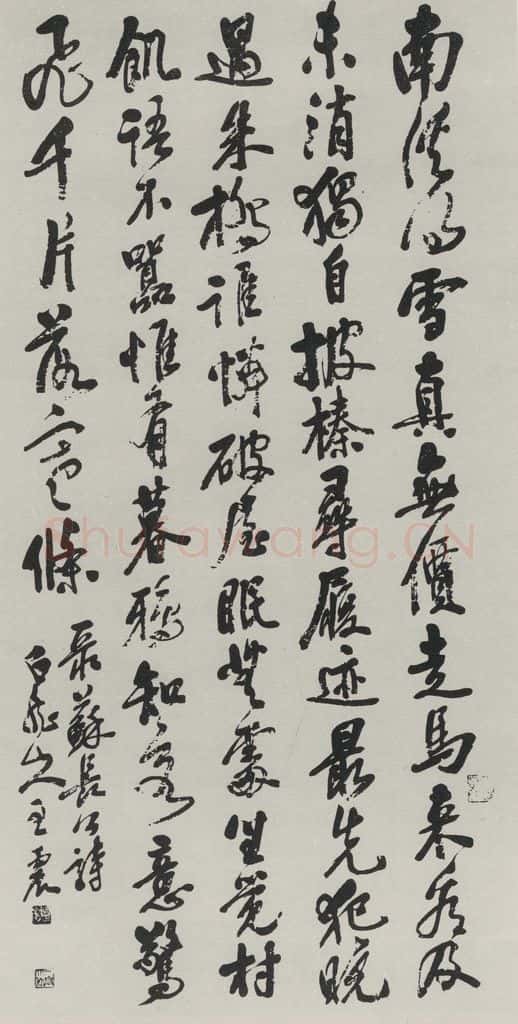 南溪得雪真無價走馬來看及
未消獨自披榛尋履迹最先犯曉
過朱橋誰憐破屋眠無處坐覺村
飢語不囂惟有暮鴉知客意驚
飛千片落寒條
蘇長公詩
白龍山人王震
Shufawang.CN